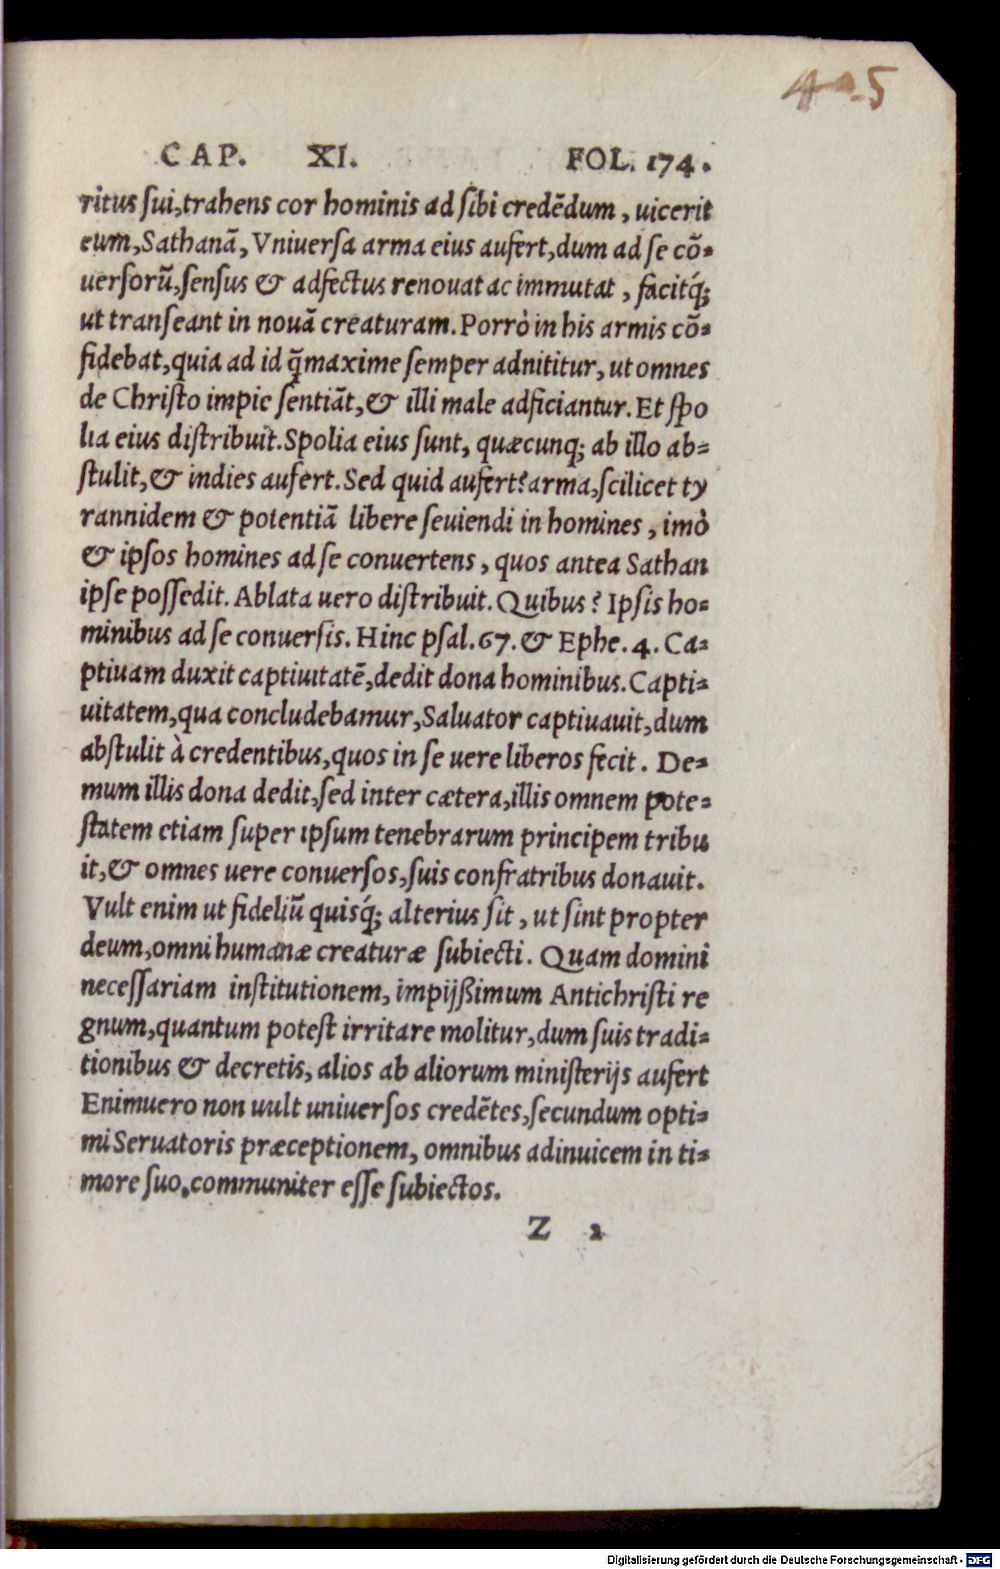 4 5
CAP. XI. FOL. 174.
ritus sui, trahens cor hominis ad sibi credẽdum, uicerit
eum, Sathanã, Vniuersa arma eius aufert, dum ad se cõ-
uersorũ, sensus & adfectus renouat ac immutat, facitq́;
ut transeant in nouã creaturam. Porrò in his armis cõ-
fidebat, quia ad id q̃maxime semper adnititur, ut omnes
de Christo impie sentiãt, & illi male adficiantur. Et spo
lia eius distribuit. Spolia eius sunt, quæcunq; ab illo ab-
stulit, & indies aufert. Sed quid aufert? arma, scilicet ty
rannidem & potentiã libere seuiendi in homines, imò
& ipsos homines ad se conuertens, quos antea Sathan
ipse possedit. Ablata uero distribuit. Quibus? Ipsis ho-
minibus ad se conuersis. Hinc psal. 67. & Ephe. 4. Ca-
ptiuam duxit captiuitatẽ, dedit dona hominibus. Capti-
uitatem, qua concludebamur, Saluator captiuauit, dum
abstulit à credentibus, quos in se uere liberos fecit. De-
mum illis dona dedit, sed inter cætera, illis omnem pote-
statem etiam super ipsum tenebrarum principem tribu
it, & omnes uere conuersos, suis confratribus donauit.
Vult enim ut fideliũ quisq́; alterius sit, ut sint propter
deum, omni humanæ creaturæ subiecti. Quam domini
necessariam institutionem, impijßimum Antichristi re
gnum, quantum potest irritare molitur, dum suis tradi-
tionibus & decretis, alios ab aliorum ministerijs aufert
Enimuero non uult uniuersos credẽtes, secundum opti-
mi Seruatoris præceptionem, omnibus adinuicem in ti-
more suo, communiter esse subiectos.
Z 2
Digitalisierung gefördert durch die Deutsche Forschungsgemeinschaft - DFG